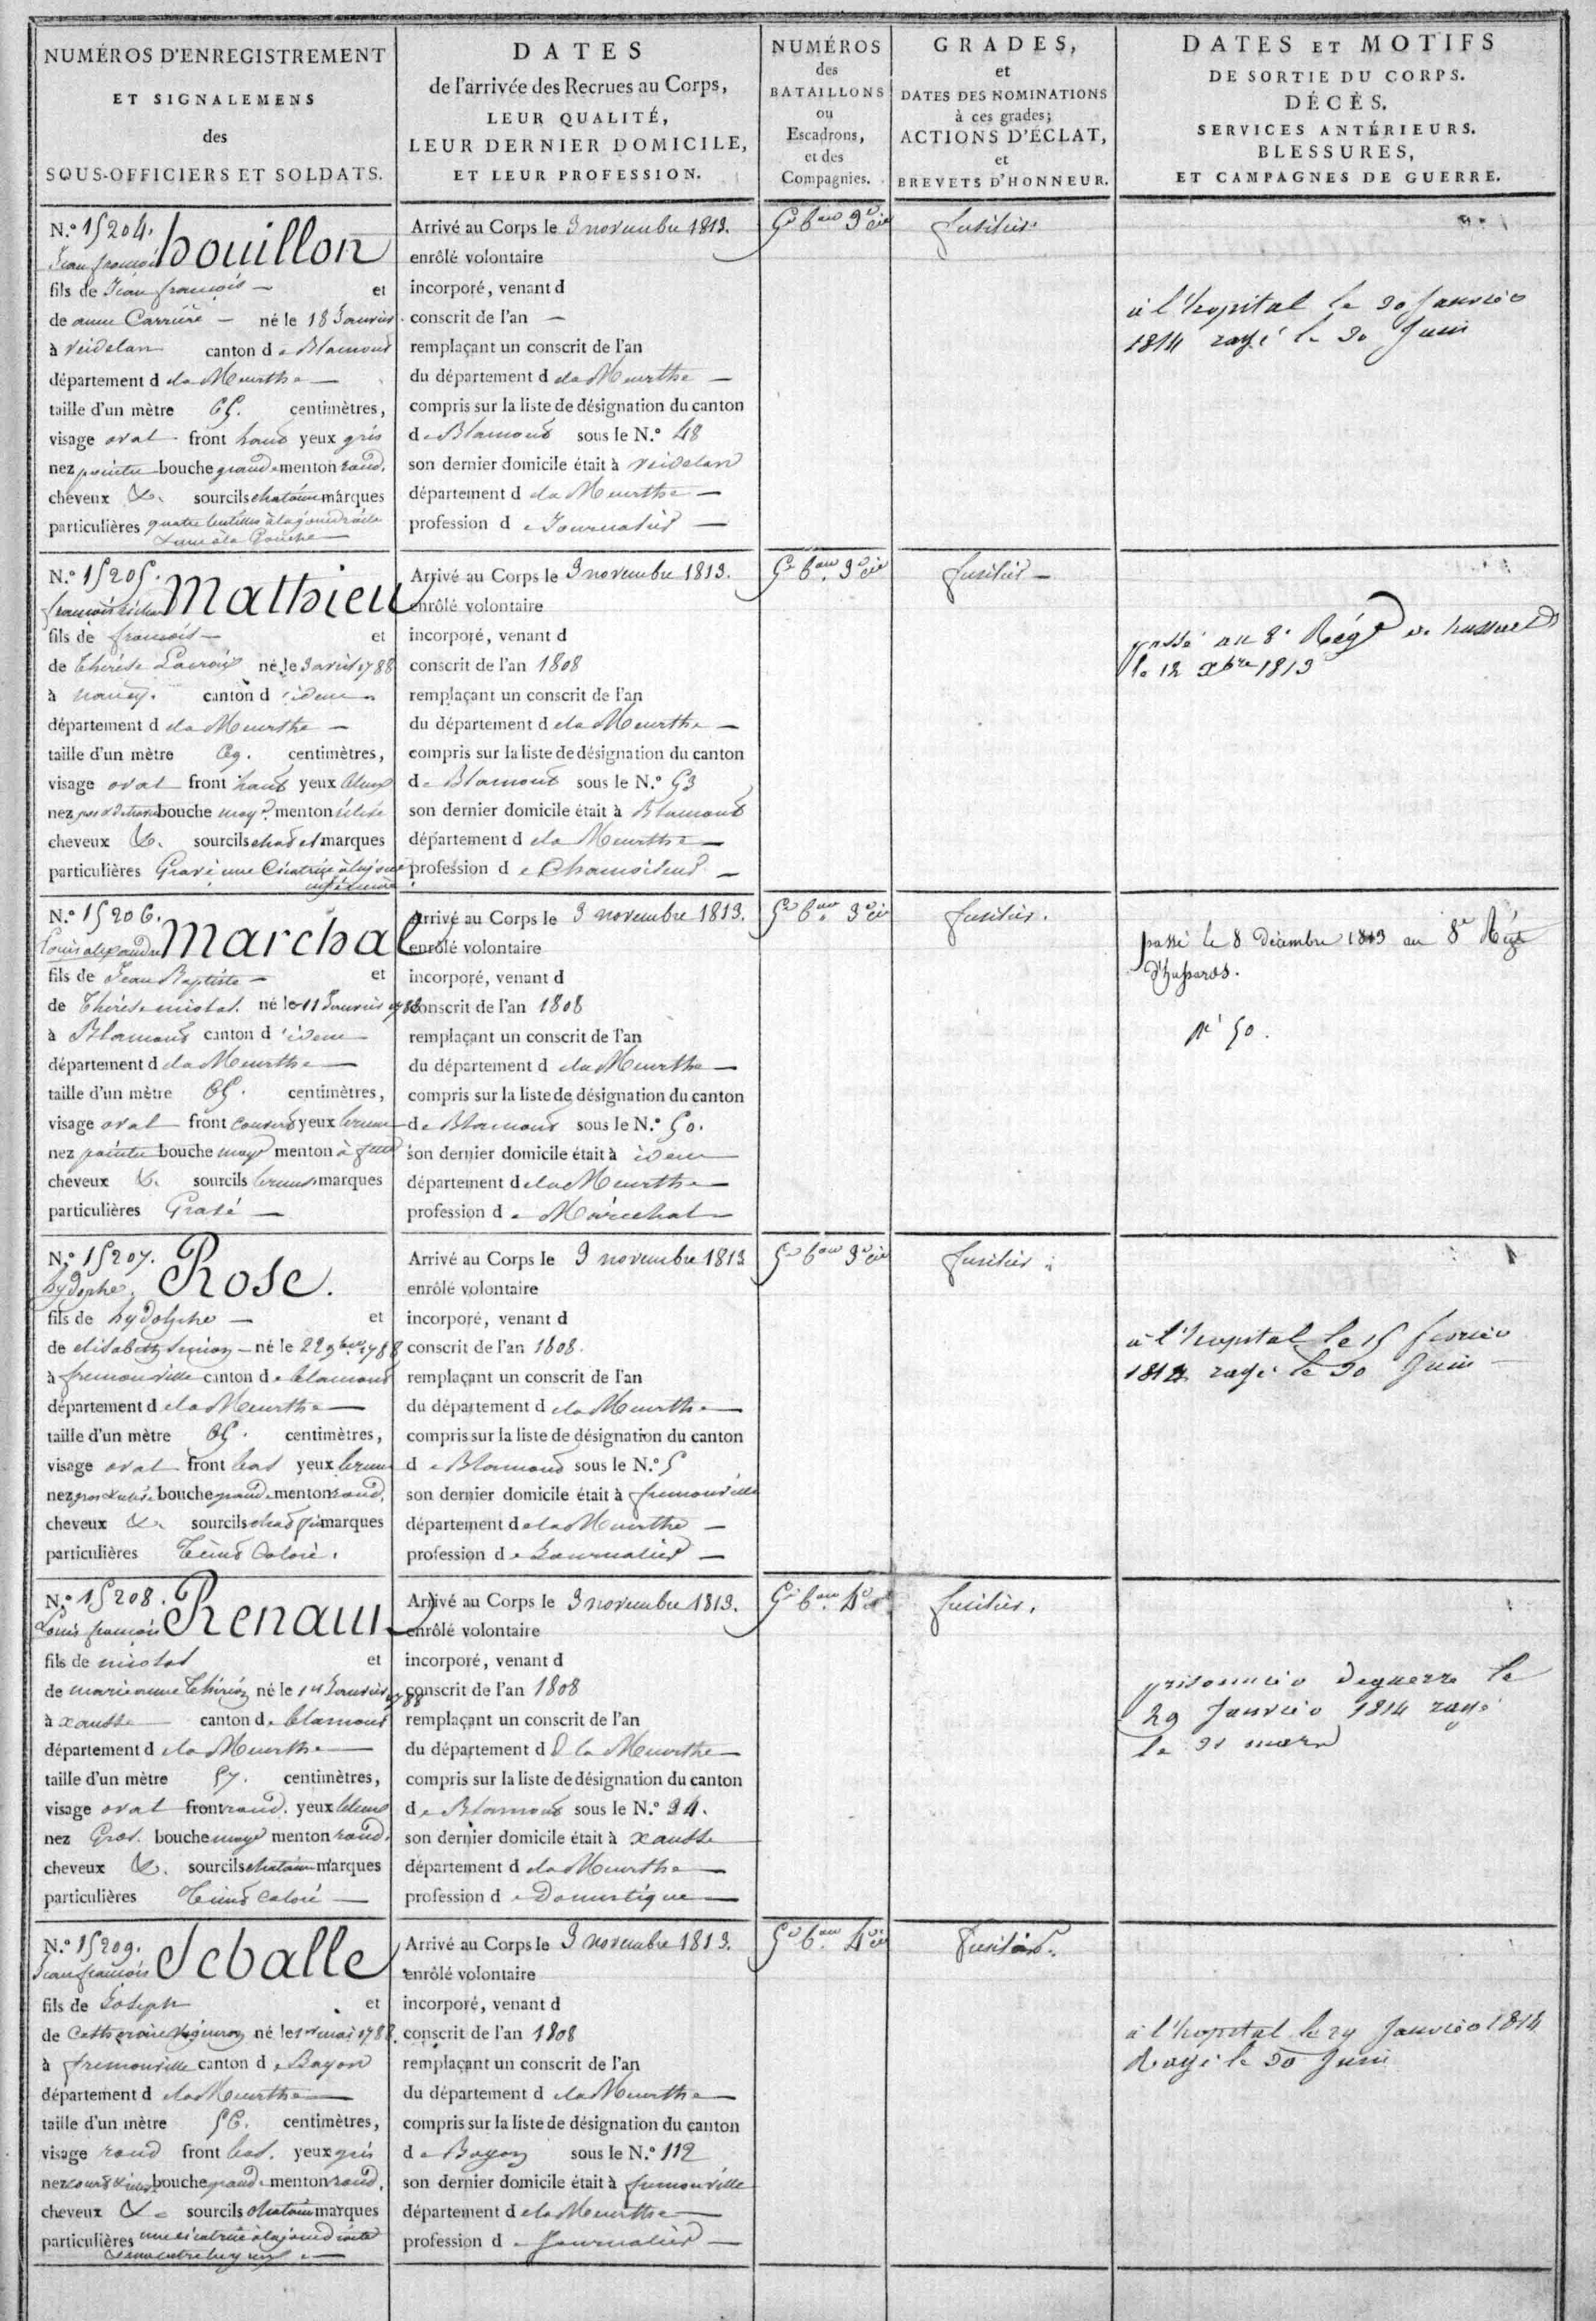 NUMÉROS D'ENREGISTREMENT
ET SIGNALEMENS
des
SOUS-OFFICIERS ET SOLDATS.
DATES
de l'arrivée des Recrues au Corps,
LEUR QUALITÉ,
LEUR DERNIER DOMICILE,
ET LEUR PROFESSION.
NUMÉROS
des
BATAILLONS
ou
Escadrons,
et des
Compagnies.
GRADES,
et
DATES DES NOMINATIONS
à ces grades;
ACTIONS D'ÉCLAT,
et
BREVETS D'HONNEUR.
DATES ET MOTIFS
DE SORTIE DU CORPS.
DÉCÈS.
SERVICES ANTÉRIEURS.
BLESSURES,
ET CAMPAGNES DE GUERRE.
N.° 15204.
Jean françois houillon
fils de Jean françois — et
de anne Carrière — né le 18 Janvier
à Veidelan canton de Blamont
département de la Meurthe —
taille d'un mètre 65. centimètres,
visage oval front haut yeux gris
nez pointu bouche grande menton rond.
cheveux &. sourcils chatain marques
particulières quatre lentilles à la joue droite
& une à la Gauche
Arrivé au Corps le 3 novembre 1813.
enrôlé volontaire
incorporé, venant d
conscrit de l'an —
remplaçant un conscrit de l'an
du département de la Meurthe —
compris sur la liste de désignation du canton
de Blamont sous le N.° 48
son dernier domicile était à Veidelan
département de la Meurthe —
profession de Journalier —
5e bon 3e cie
fusilier
à l'hopital le 30 Janvier
1814 rayé le 30 Juin
N.° 15205.
françois Mathieu
fils de françois — et
de thérèse Lacroix né le 3 avril 1788
à nancy. canton d idem
département de la Meurthe —
taille d'un mètre 69. centimètres,
visage oval front haut yeux bleus
nez bouche moy.e menton
cheveux &. sourcils chat et marques
particulières Gravé une Cicatrice à la joue
Arrivé au Corps le 3 novembre 1813.
enrôlé volontaire
incorporé, venant d
conscrit de l'an 1808
remplaçant un conscrit de l'an
du département de la Meurthe —
compris sur la liste de désignation du canton
de Blamont sous le N.° 53
son dernier domicile était à Blamont
département de la Meurthe —
profession de Chamoiseur —
5e bon 3e cie
fusilier —
passé au 8e Régt de hussards
le 12 Xbre 1813
N.° 15206.
Louis alexandre Marchal
fils de Jean Baptiste — et
de Thérèse nicolas. né le 11 Janvier 1788
à Blamont canton d idem
département de la Meurthe —
taille d'un mètre 65. centimètres,
visage oval front couvert yeux bruns
nez pointu bouche moye menton à
cheveux &. sourcils bruns marques
particulières Gravé —
Arrivé au Corps le 3 novembre 1813.
enrôlé volontaire
incorporé, venant d
conscrit de l'an 1808
remplaçant un conscrit de l'an
du département de la Meurthe —
compris sur la liste de désignation du canton
de Blamont sous le N.° 50.
son dernier domicile était à idem
département de la Meurthe —
profession de Maréchal
5e bon 3e cie
fusilier.
passé le 8 Décembre 1813 au 8e Régt
d'hussards.
n° 50.
N.° 15207. Rose.
hydophe.
fils de hydolphe — et
de elisabeth simion — né le 22 9bre 1788
à fremonville canton de blamont
département de la Meurthe —
taille d'un mètre 65. centimètres,
visage oval front bas yeux bruns
nez bouche grande menton rond,
cheveux &. sourcils marques
particulières Teint Coloré.
Arrivé au Corps le 3 novembre 1813
enrôlé volontaire
incorporé, venant d
conscrit de l'an 1808.
remplaçant un conscrit de l'an
du département de la Meurthe —
compris sur la liste de désignation du canton
de Blamont sous le N.° 5
son dernier domicile était à fremonville
département de la Meurthe —
profession de Journalier —
5e bon 3e cie
fusilier
à l'hopital le 15 fevrier
1814 rayé le 30 Juin
N.° 15208.
Louis françois Renaux
fils de nicolas et
de marie anne thirion né le 1er Janvier 1788
à xausse canton de blamont
département de la Meurthe —
taille d'un mètre 57. centimètres,
visage oval front rond. yeux bleus
nez Gros. bouche moye menton rond.
cheveux &. sourcils chatain marques
particulières Teint Coloré —
Arrivé au Corps le 3 novembre 1813.
enrôlé volontaire
incorporé, venant d
conscrit de l'an 1808
remplaçant un conscrit de l'an
du département d D la Meurthe —
compris sur la liste de désignation du canton
de Blamont sous le N.° 34.
son dernier domicile était à xausse
département de la Meurthe —
profession de Domestique —
5e bon 4e cie
fusilier.
prisonnier de guerre le
29 Janvier 1814 rayé
le 31 mars
N.° 15209.
Jean françois Seballe
fils de Joseph et
de Catherine né le 1er mai 1788.
à fremonville canton de Bayon
département de la Meurthe —
taille d'un mètre 56. centimètres,
visage rond front bas. yeux gris
nez bouche grande menton rond,
cheveux &. sourcils chatain marques
particulières une cicatrice à la joue droite
Arrivé au Corps le 3 novembre 1813.
enrôlé volontaire
incorporé, venant d
conscrit de l'an 1808
remplaçant un conscrit de l'an
du département de la Meurthe —
compris sur la liste de désignation du canton
de Bayon sous le N.° 112
son dernier domicile était à fremonville
département de la Meurthe —
profession de Journalier —
5e bon 4e cie
fusilier.
à l'hopital le 29 Janvier 1814
Rayé le 30 Juin